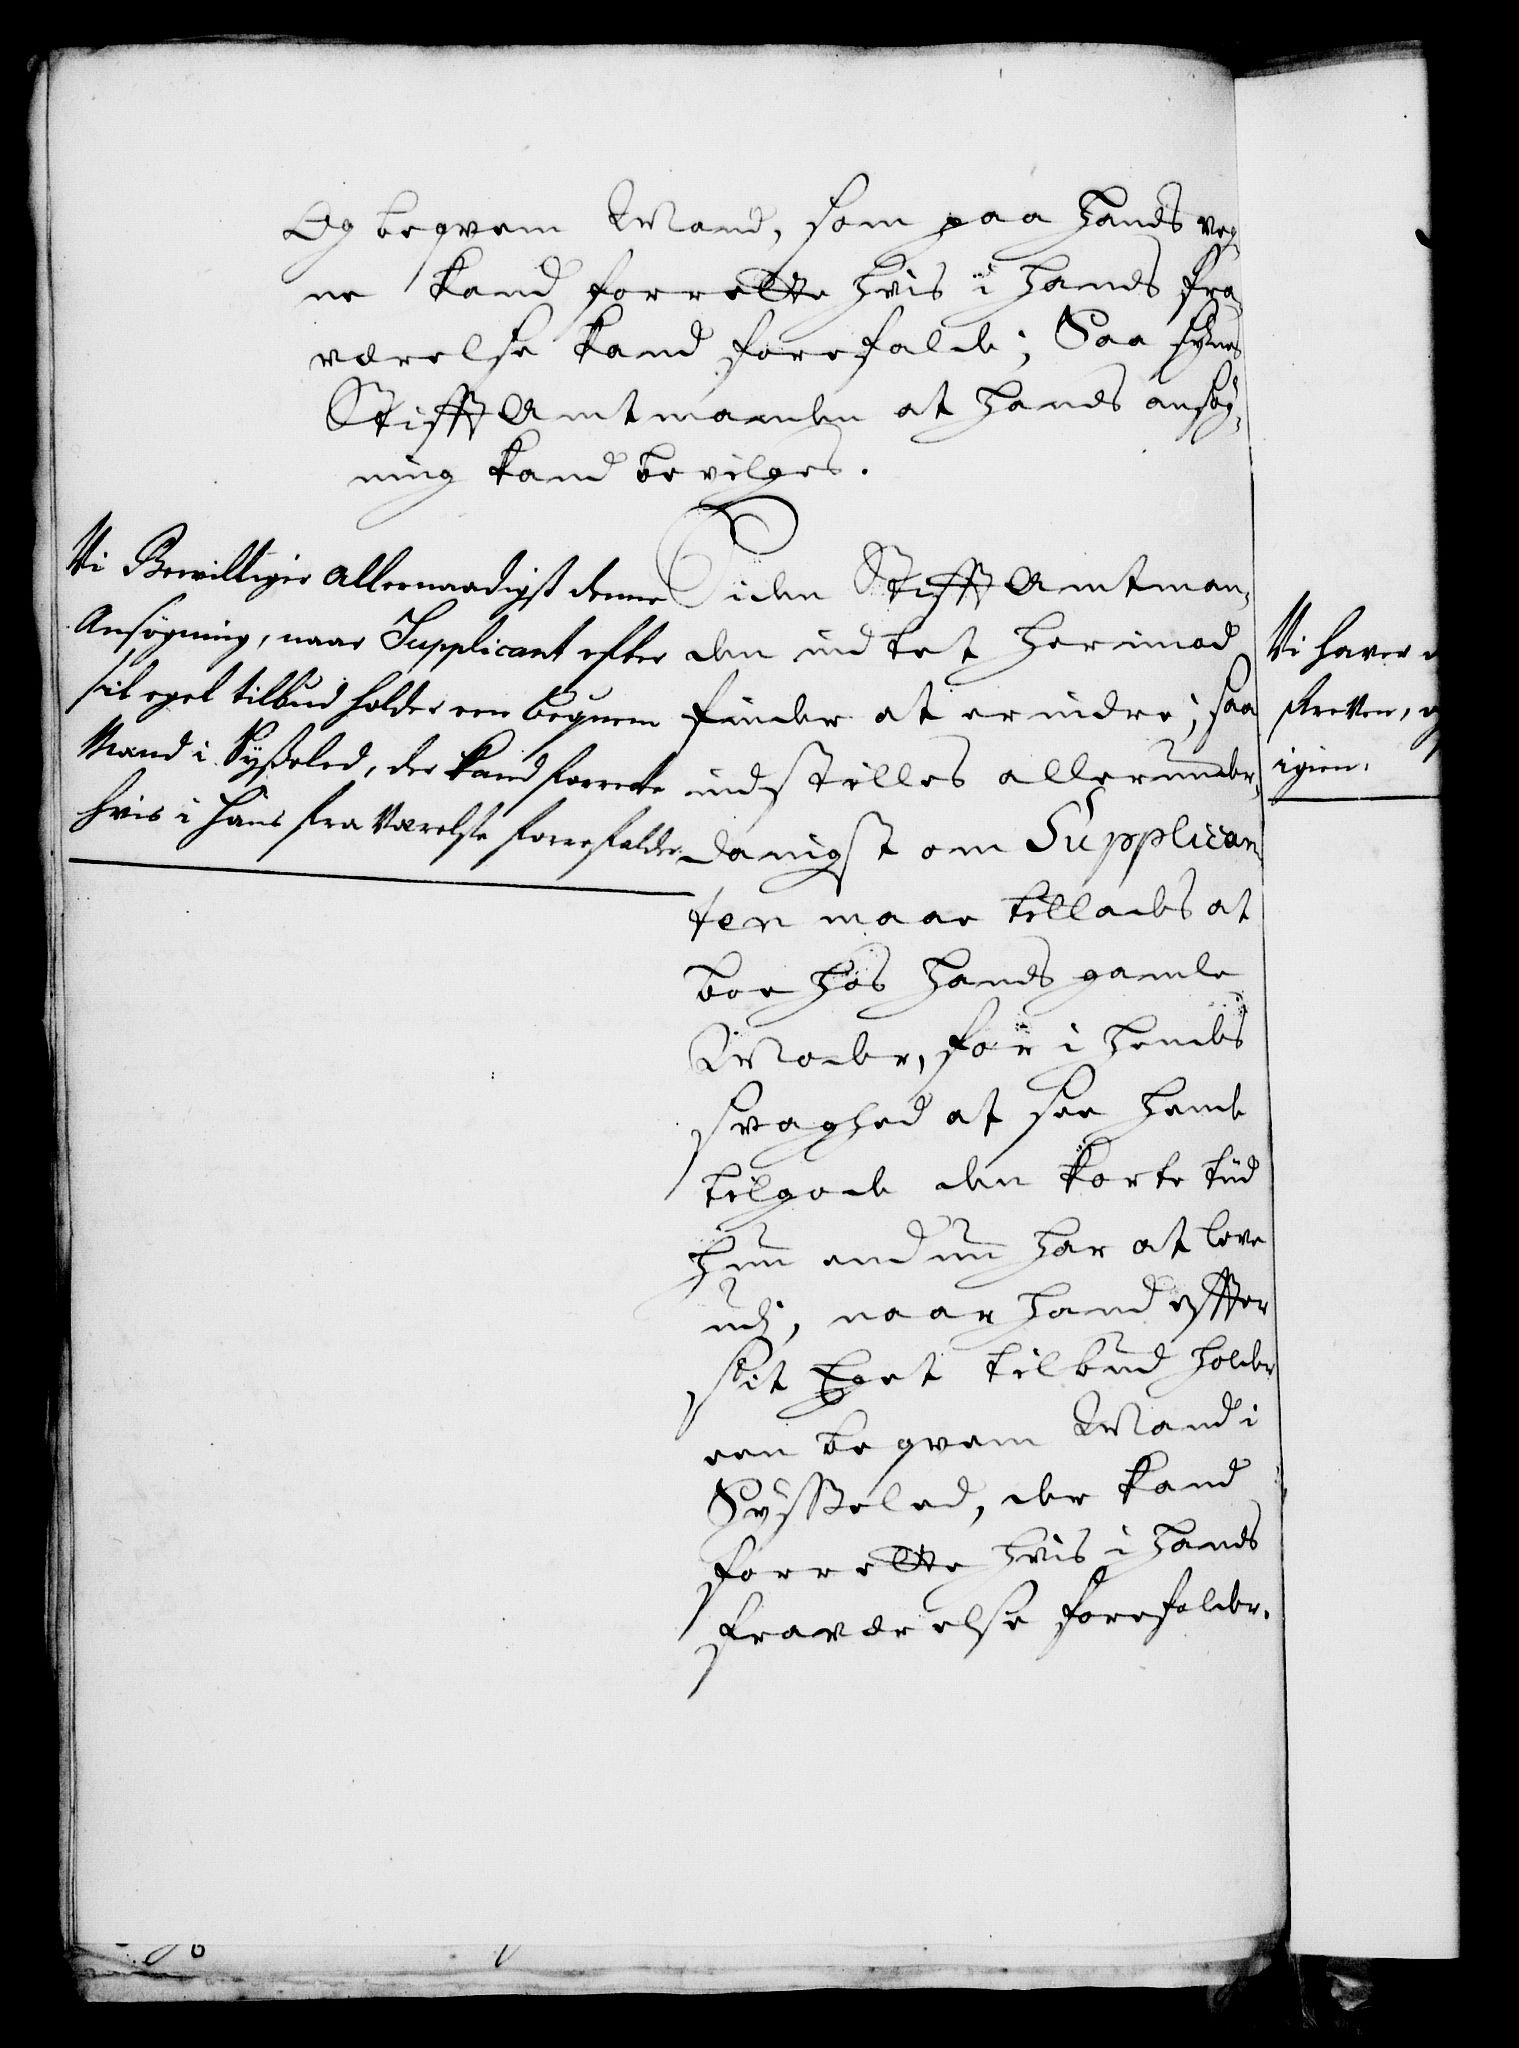 Og beqvem Mand, som paa hands veg¬
ne kand forrette hvis i hands fra¬
værelse kand forefalde; Saa synes
StifftAmtmanden at hands ansøg¬
ning kand bevilges.
Vi Bewilliger allernaadigst denne
Ansøgning, naar Supplicant efter
sit eget tilbud holder een beqvem
Mand i Sysseled, der kand forrette
hvis i hans fraværelse forrefalder.
Siden StifftAmtman¬
den indtet herimod
finder at erindre; saa
indstilles allerunder¬
danigst om Supplican¬
ten maae tillades at
boe hos hands gamle
Moder, for i hendes
svaghed at see hende
tilgode den korte tiid
hun endnu har at leve
udi, naar hand effter
sit Eget tilbud holder
een beqvem Mand i
Sysseled, der kand
forrette hvis i hands
fraværelse forefalder.
Vi haver
igien.